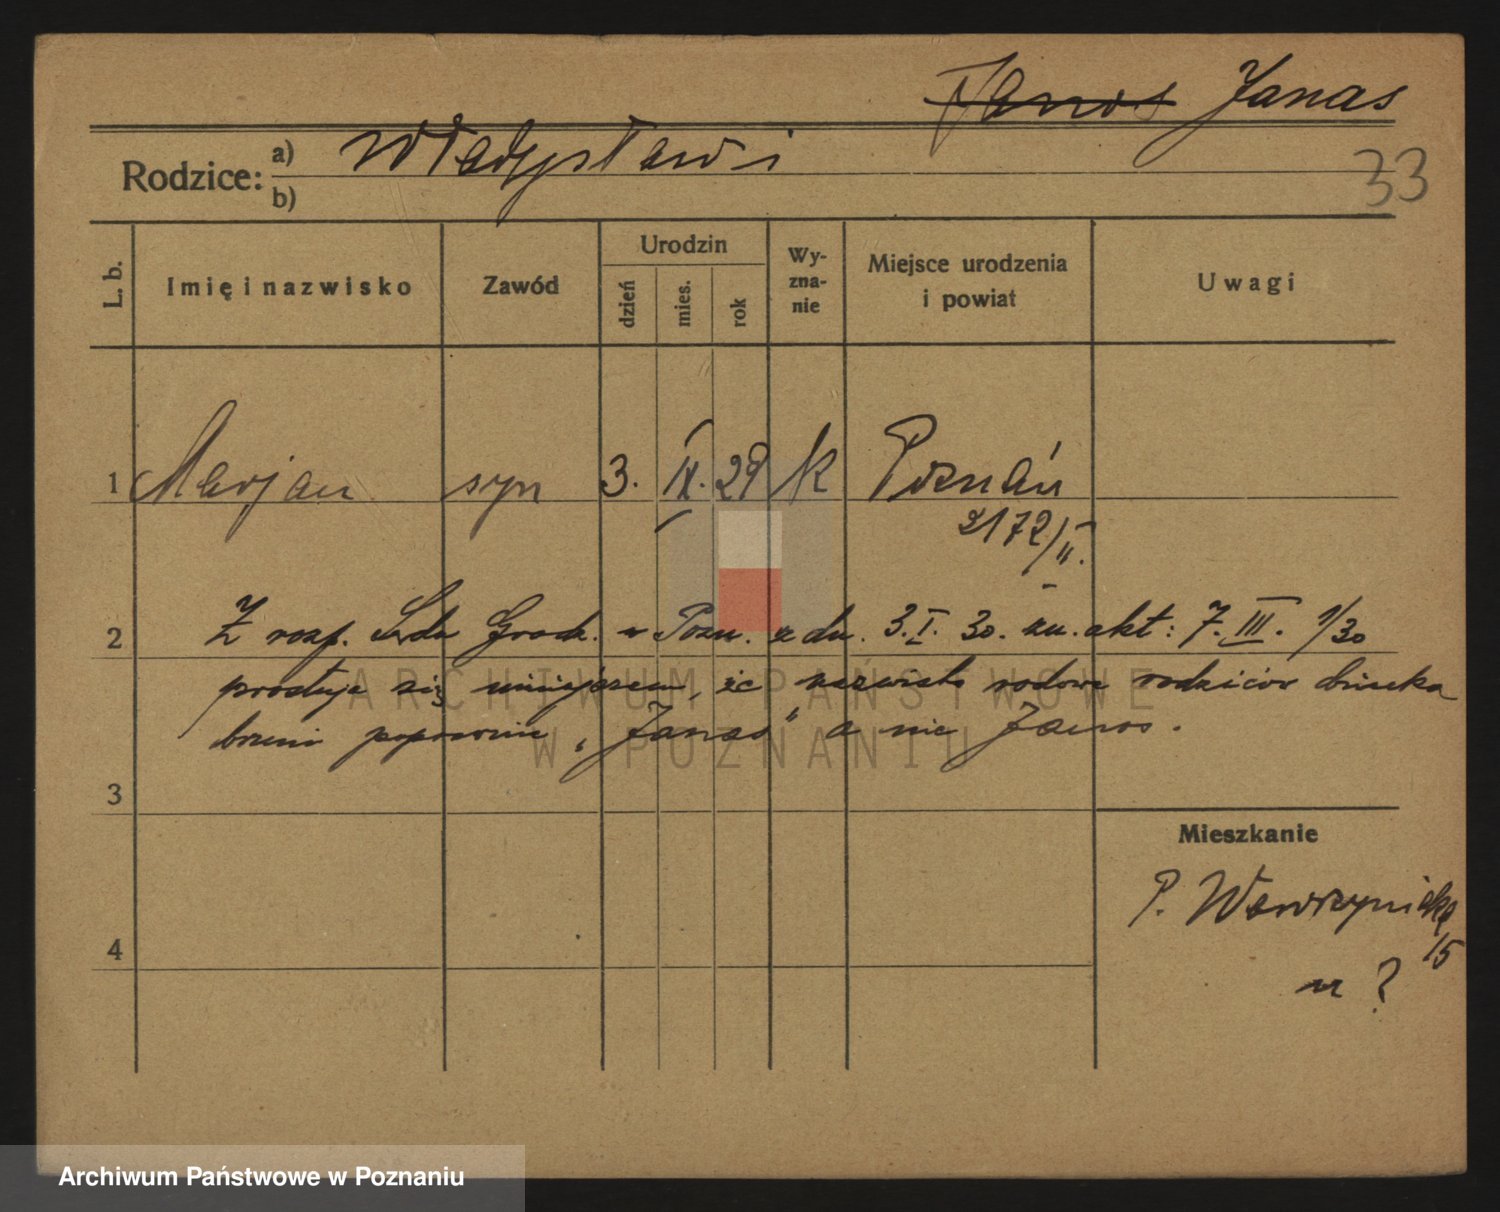 Janos Janas
Rodzice: a) Władysław i
b)
33
L. b.
Imię i nazwisko
Zawód
Urodzin
dzień
mies.
rok
Wy-
zna-
nie
Miejsce urodzenia
i powiat
Uwagi
1 Marjan syn 3. IX. 29 k Poznań
2172/II.
2 Z rozp. Sądu Grodz. w Pozn. z dn. 3. I. 30. zn. akt: 7. III. 1/30
prostuje się niniejszem, że nazwisko rodowe rodziców dziecka
brzmi poprawnie „Janas" a nie Janos.
3
4
Mieszkanie
P. Wawrzyniaka
15
m ?
ARCHIWUM PAŃSTWOWE
W POZNANIU
Archiwum Państwowe w Poznaniu